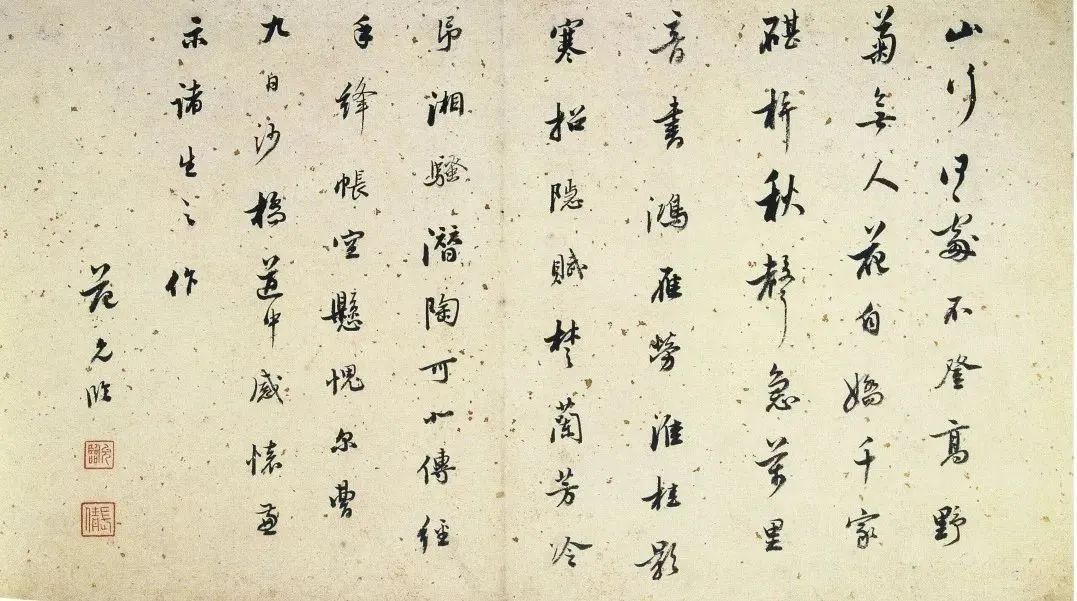 山行何處不登高野
菊無人花自嬌千家
碪杵秋聲急萬里
音書鴻雁勞淮桂影
寒招隱賦楚蘭芳冷
吊湘騷潛陶可以傳經
手絳帳空懸愧尔曹
九日沙橋道中感懷兼
示諸生之作
范允臨
允臨
長倩